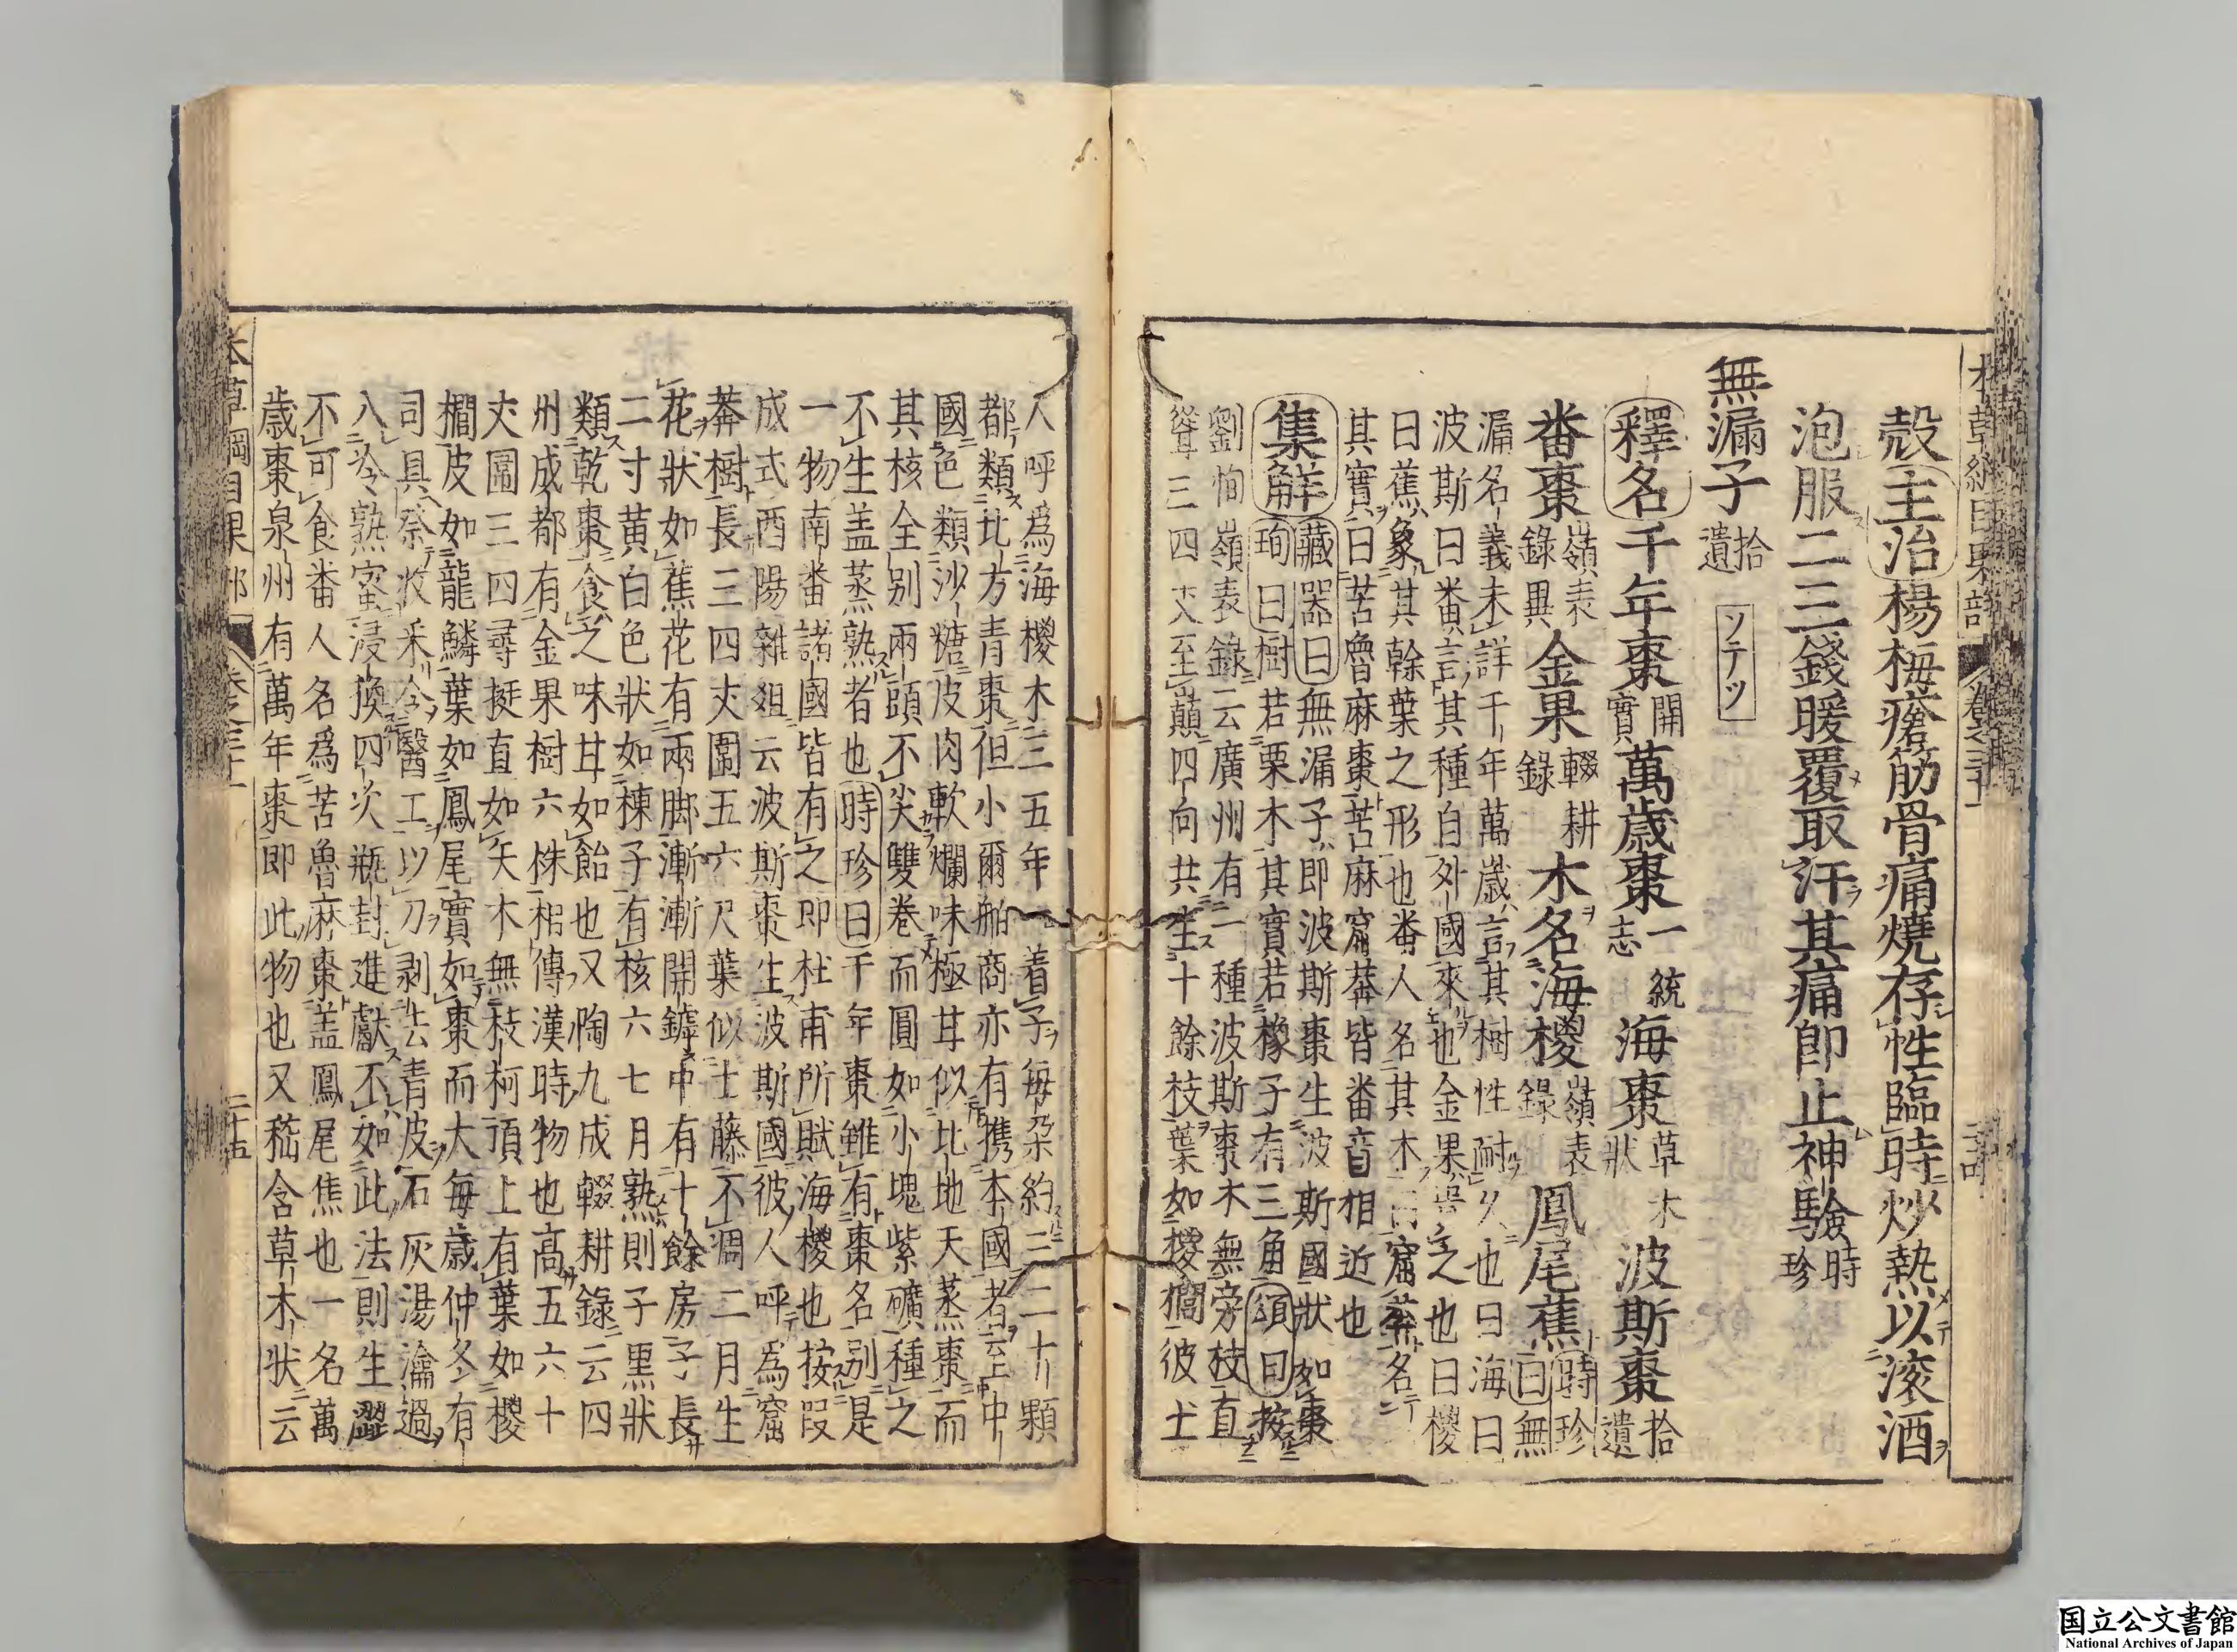 本草綱目果部 卷之三十一 二十四
殻主治楊梅瘡筋骨痛燒存性臨時炒熱以滚酒
泡服二三錢暖覆取汗其痛即止神驗時珍
無漏子拾遺 ソテツ
釋名千年棗開寶萬歳棗一統志海棗草木狀波斯棗拾遺
番棗嶺表錄異金果輟耕錄木名海㯶嶺表錄鳳尾蕉時珍曰無
漏名義未詳千年萬歳言其樹性耐久也曰海曰
波斯曰番言其種自外國來也金果貴之也曰㯶
曰蕉象其幹葉之形也番人名其木曰窟莽名
其實曰苦魯麻棗苦麻窟莽皆番音相近也
集解藏器曰無漏子即波斯棗生波斯國狀如棗
珣曰樹若栗木其實若橡子有三角頌曰按
劉恂嶺表錄云廣州有一種波斯棗木無旁枝直
聳三四丈至巔四向共生十餘枝葉如㯶櫚彼土
人呼爲海㯶木三五年一着子毎朶約三二十顆
都類北方青棗但小爾舶商亦有携本國者至中
國色類沙糖皮肉軟爛味極甘似北地天蒸棗而
其核全别兩頭不尖雙卷而圓如小塊紫礦種之
不生盖蒸熟者也時珍曰千年棗雖有棗名别是
一物南番諸國皆有之即杜甫所賦海㯶也按段
成式酉陽雜俎云波斯棗生波斯國彼人呼爲窟
莽樹長三四丈圍五六尺葉似土藤不凋二月生
花狀如蕉花有兩脚漸漸開鏬中有十餘房子長
二寸黄白色狀如楝子有核六七月熟則子黒狀
類乾棗食之味甘如飴也又陶九成輟耕錄云四
州成都有金果樹六株相傳漢時物也髙五六十
丈圍三四尋挺直如矢木無枝柯頂上有葉如㯶
櫚皮如龍鱗葉如鳳尾實如棗而大毎歳仲冬有
司具祭收采令醫工以刀剥去青皮石灰湯瀹過
入冷熟蜜浸換四次瓶封進獻不如此法則生澀
不可食番人名爲苦魯麻棗盖鳳尾焦也一名萬
歳棗泉州有萬年棗即此物也又嵇含草木狀云
本草綱目果部 卷之三十一 二十五
国立公文書館
National Archives of Japan